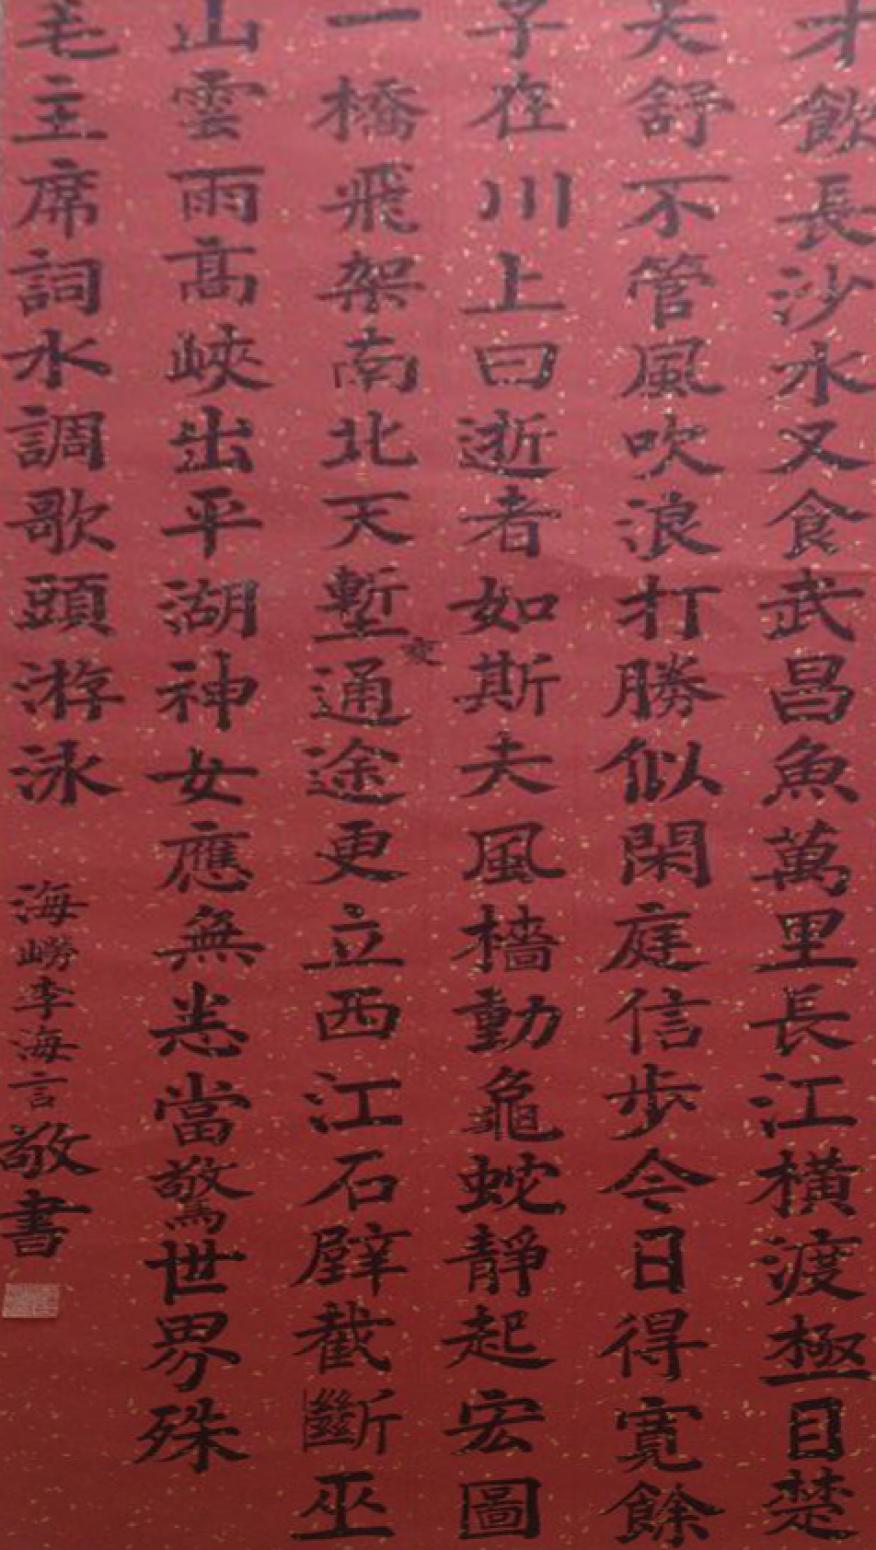 才飲長沙水又食武昌魚萬里長江橫渡極目楚
天舒不管風吹浪打勝似閑庭信步今日得寬餘
子在川上曰逝者如斯夫風檣動龜蛇靜起宏圖
一橋飛架南北天塹變通途更立西江石壁截斷巫
山雲雨髙峽出平湖神女應無恙當驚世界殊
毛主席詞水調歌頭游泳 海嶗李海言敬書